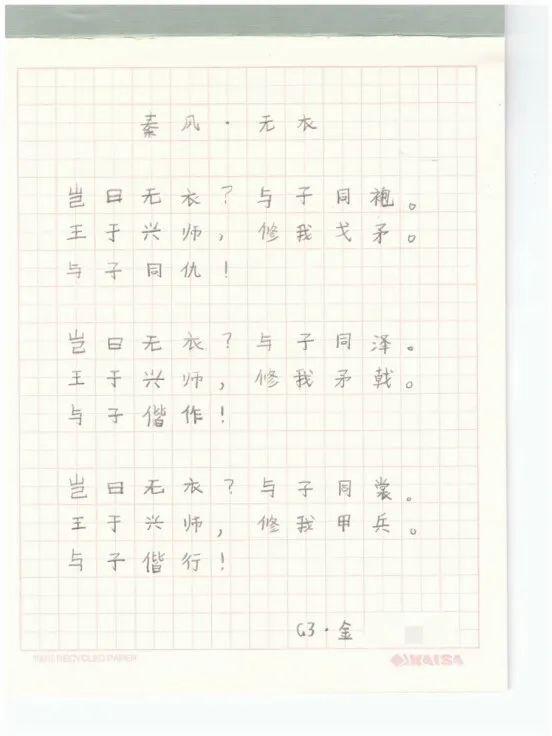 秦风·无衣
岂曰无衣？与子同袍。
王于兴师，修我戈矛。
与子同仇！
岂曰无衣？与子同泽。
王于兴师，修我矛戟。
与子偕作！
岂曰无衣？与子同裳。
王于兴师，修我甲兵。
与子偕行！
G3·金
100% RECYCLED PAPER
KAISA